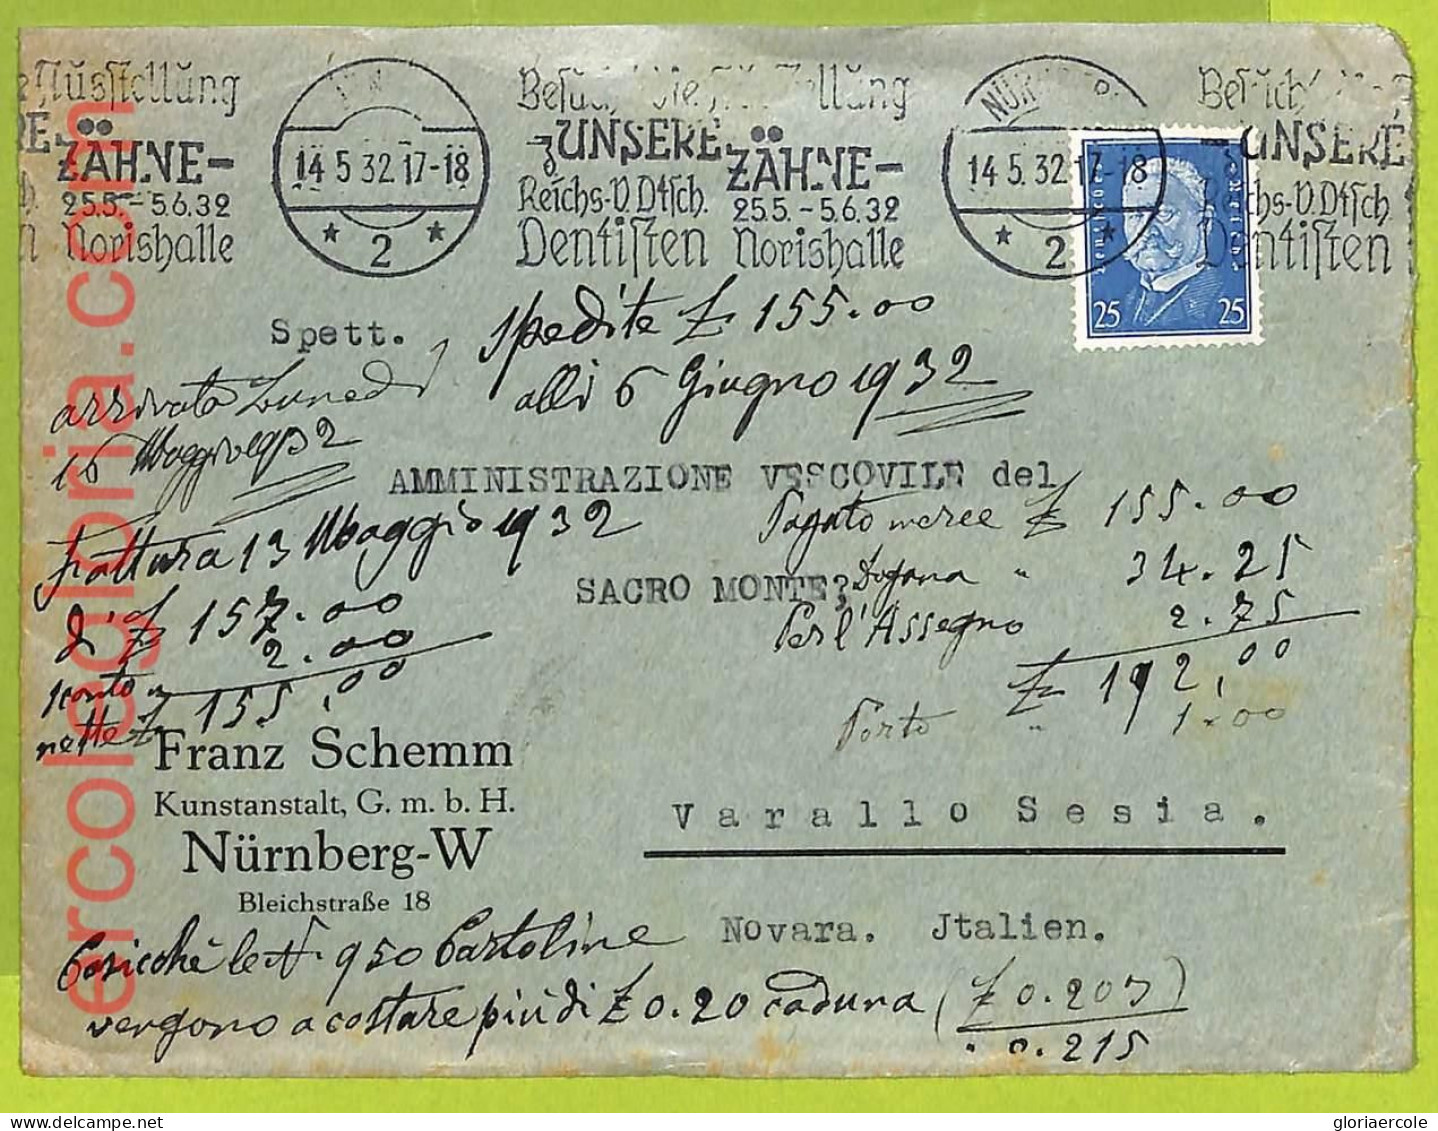 e Ausstellung
RE ZÄHNE-
25.5.-5.6.32
Norishalle
14.5.32.17-18
* 2 *
Besucht die Ausstellung
UNSERE ZÄHNE-
Reichs-V.Dtsch. 25.5.-5.6.32
Dentisten Norishalle
NÜRNBERG
14.5.32.17-18
* 2 *
Deutsches Reich
25 25
Besucht die
UNSERE
Reichs-V.Dtsch.
Dentisten
Spett.
spedite £ 155.00
alli 6 Giugno 1932
arrivata Lunedì
16 Maggio 1932
AMMINISTRAZIONE VESCOVILE del
SACRO MONTE,
Fattura 13 Maggio 1932
di £ 157.00
sconto " 2.00
nette £ 155.00
Pagato merce £ 155.00
Dogana " 34.25
Per l'Assegno 2.75
£ 192.00
Porto " 1.00
Franz Schemm
Kunstanstalt, G. m. b. H.
Nürnberg-W
Bleichstraße 18
Varallo Sesia.
Novara. Jtalien.
Cosicchè le N. 950 Cartoline
vengono a costare più di £ 0.20 caduna (£ 0.203)
0.215
ercolegloria.com
gloriaercole